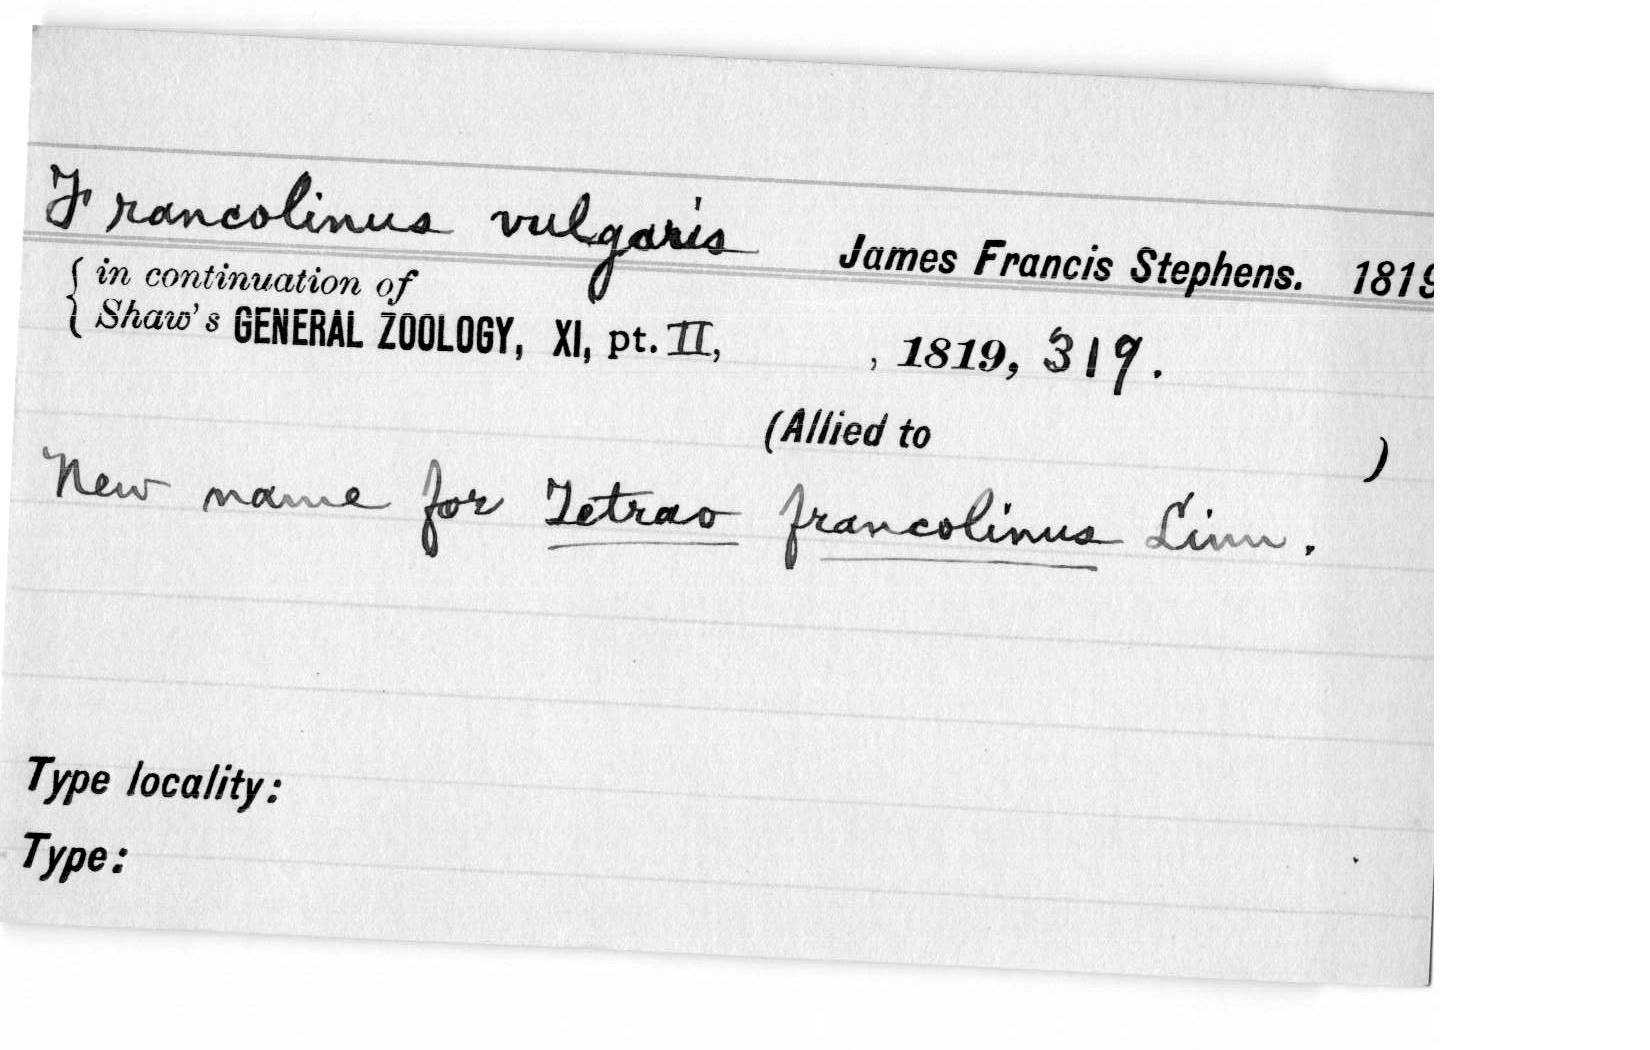 Francolinus vulgaris James Francis Stephens. 1819
{ in continuation of
{ Shaw's GENERAL ZOOLOGY, XI, pt. II, , 1819, 319.
(Allied to )
New name for Tetrao francolinus Linn.
Type locality:
Type: